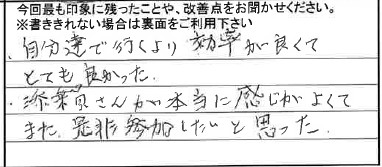 今回最も印象に残ったことや、改善点をお聞かせください。
※書ききれない場合は裏面をご利用下さい
・自分達で行くより効率が良くて
とても良かった.
・添乗員さんが本当に感じがよくて
また、是非参加したいと思った.